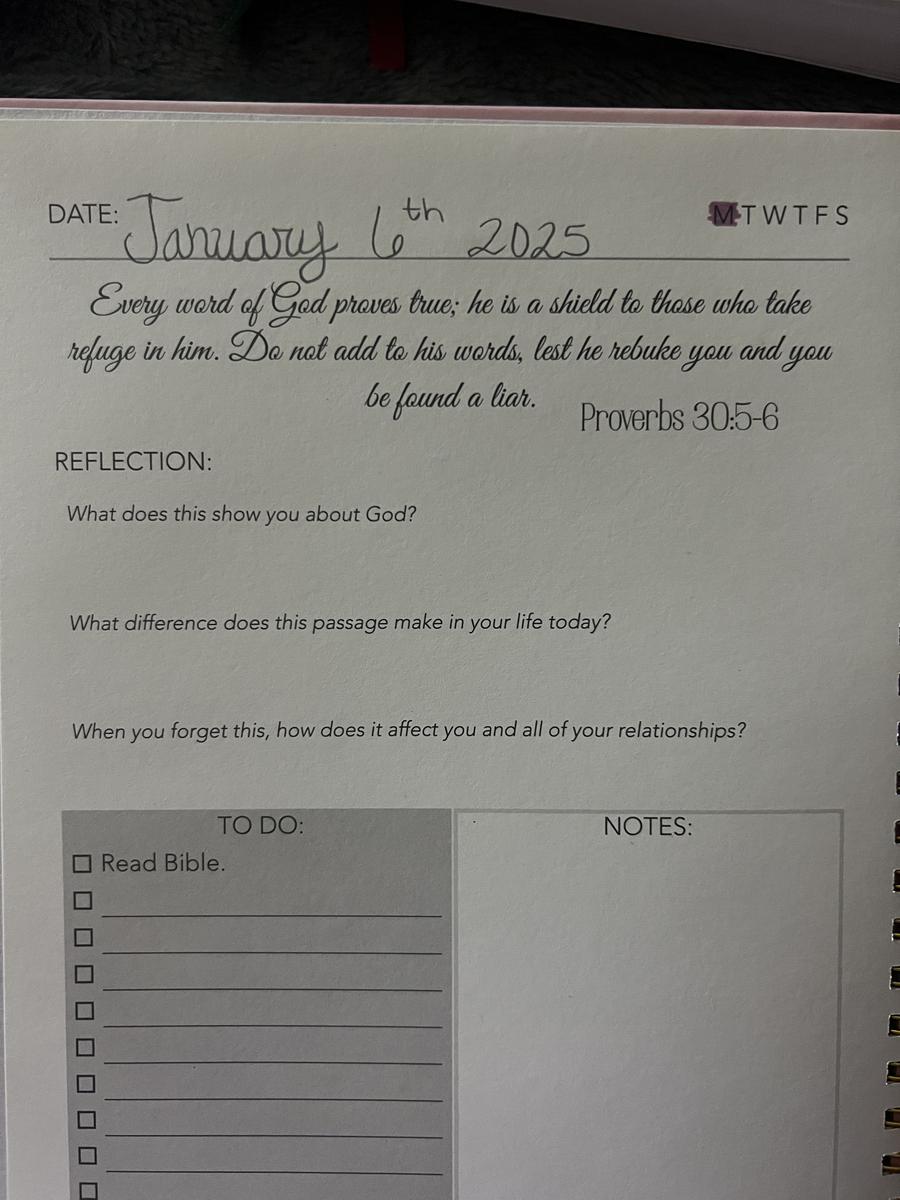 DATE: January 6th 2025 M T W T F S
Every word of God proves true; he is a shield to those who take
refuge in him. Do not add to his words, lest he rebuke you and you
be found a liar.
Proverbs 30:5-6
REFLECTION:
What does this show you about God?
What difference does this passage make in your life today?
When you forget this, how does it affect you and all of your relationships?
TO DO:
Read Bible.
NOTES: